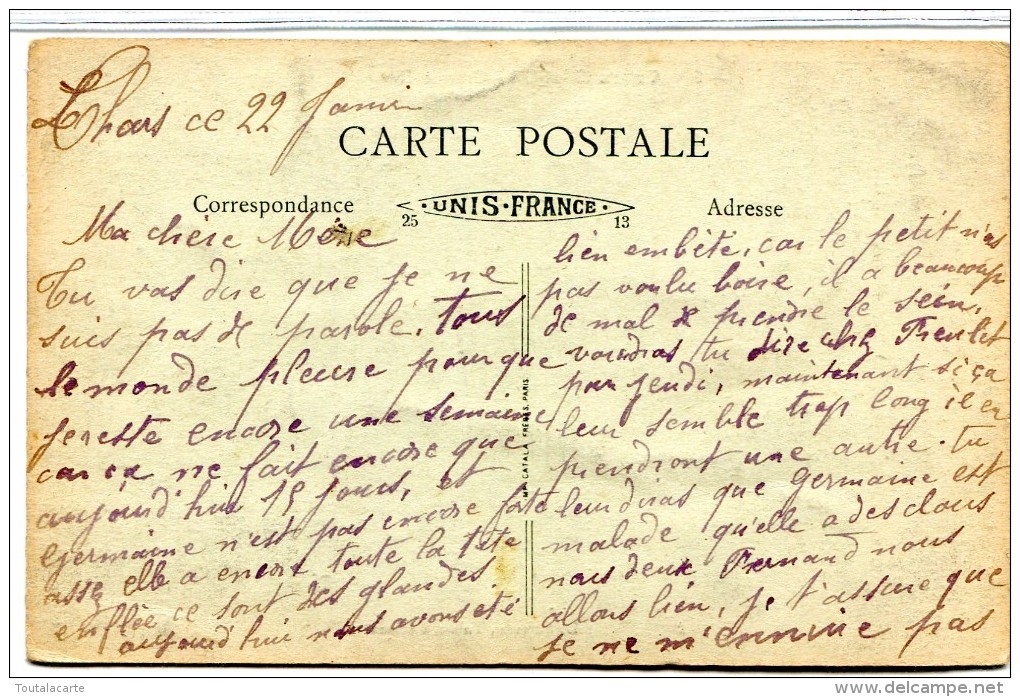 Thors ce 22 Janvi
CARTE POSTALE
Correspondance
25 UNIS·FRANCE 13
Adresse
Ma chère Mère
Tu vas dire que je ne
suis pas de parole. tous
le monde pleure pour que
je reste encore une semaine
car ça ne fait encore que
aujourd'hui 15 jours, et
Germaine n'est pas encore forte
assez elle a encore toute la tête
enflée ce sont des glandes.
aujourd'hui nous avons été
bien embêté, car le petit n'as
pas voulu boire, il a beaucoup
de mal a prendre le sein,
voudras tu dire chez
par jeudi, maintenant si ça
leur semble trop long il en
prendront une autre. tu
leur diras que germaine est
malade qu'elle a des clous
nous deux Fernand nous
allons bien, je t'assure que
je ne m'ennuie pas
CATALA FRÈRES, PARIS
Toutalacarte
delcampe.net